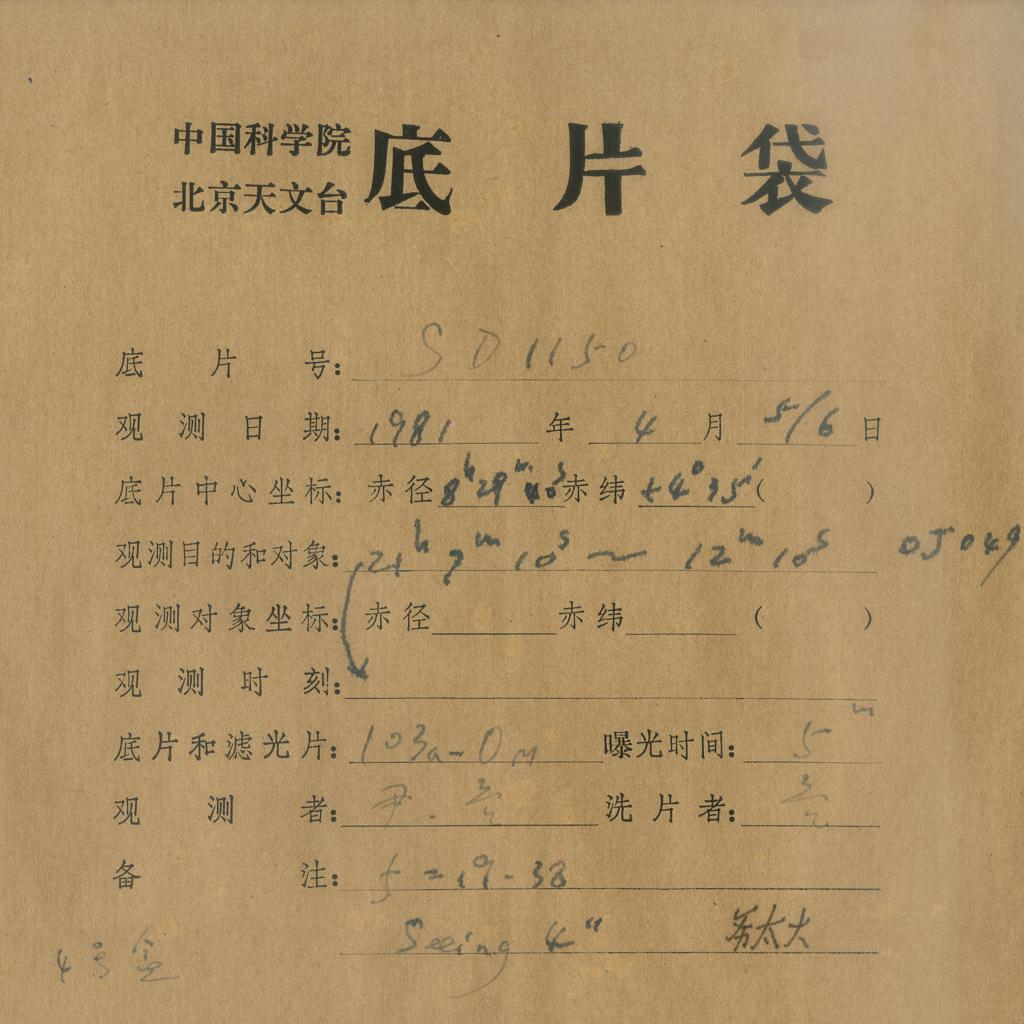 中国科学院
北京天文台
底片袋
底片号: SD1150
观测日期: 1981年4月5/6日
底片中心坐标: 赤径8h29m40s赤纬+4°35′( )
观测目的和对象: 21h7m10s~12m10s 05049
观测对象坐标: 赤径 赤纬 ( )
观测时刻:
底片和滤光片: 103a-O 曝光时间: 5m
观测者: 尹. 洗片者:
备注: 5=19.38
Seeing 4" 太大
4号盒